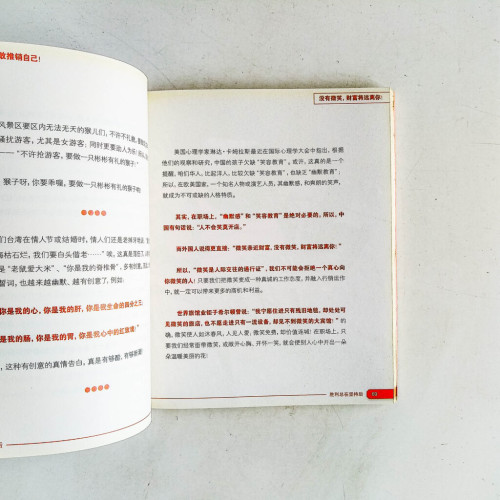 敢推销自己！
风景区要区内无法无天的猴儿们，不许不礼貌
骚扰游客，尤其是女游客；同时更要追人为
——“不许抢游客，要做一只彬彬有礼的猴子！”
猴子呀，你要乖喔，要做一只彬彬有礼的猴子啦
们台湾在情人节或结婚时，情人们还是老
海枯石烂，我们要白头偕老……”唉，这真是
是“老鼠爱大米”、“你是我的脊椎骨”，多有创意，
誓词，也越来越幽默、越有创意了，例如：
你是我的心，你是我的肝，你是我生命的四分之三；
是我的肠，你是我的胃，你是我心中的红玫瑰！”
，这种有创意的真情告白，真是有够酷、有够
没有微笑，财富将远离你！
美国心理学家琳达·卡姆拉斯最近在国际心理学大会中指出，根据
他们的观察和研究，中国的孩子欠缺“笑容教育”。或许，这真的是一个
提醒，咱们华人，比起洋人，比较欠缺“笑容教育”，也缺乏“幽默教育”；
所以，在欧美国家，一个知名人物或演艺人员，其幽默感，和爽朗的笑声，
就成为不可或缺的人格特质。
其实，在职场上，“幽默感”和“笑容教育”是绝对必要的。所以，中
国有句话说：“人不会笑莫开店。”
而外国人说得更直接：“微笑表达财富，没有微笑，财富将远离你！”
所以，“微笑是人际交往的通行证”，我们不可能会拒绝一个真心向
你微笑的人！只要我们把微笑变成一种真诚的工作态度，并融入行销出作
中，就一定可以带来更多的商机和利益。
世界旅馆业钜子希尔顿曾说：“我宁愿住进只有残旧地毯，却处处可
见微笑的旅店，也不愿走进只有一流设备，却见不到微笑的大宾馆！”的
确，微笑使人如沐春风，人见人爱，微笑免费，却价值连城！在职场上，只
要我们经常面带微笑，或敞开心胸、开怀一笑，就会使别人心中开出一朵
朵温暖美丽的花！
胜利总在坚持后